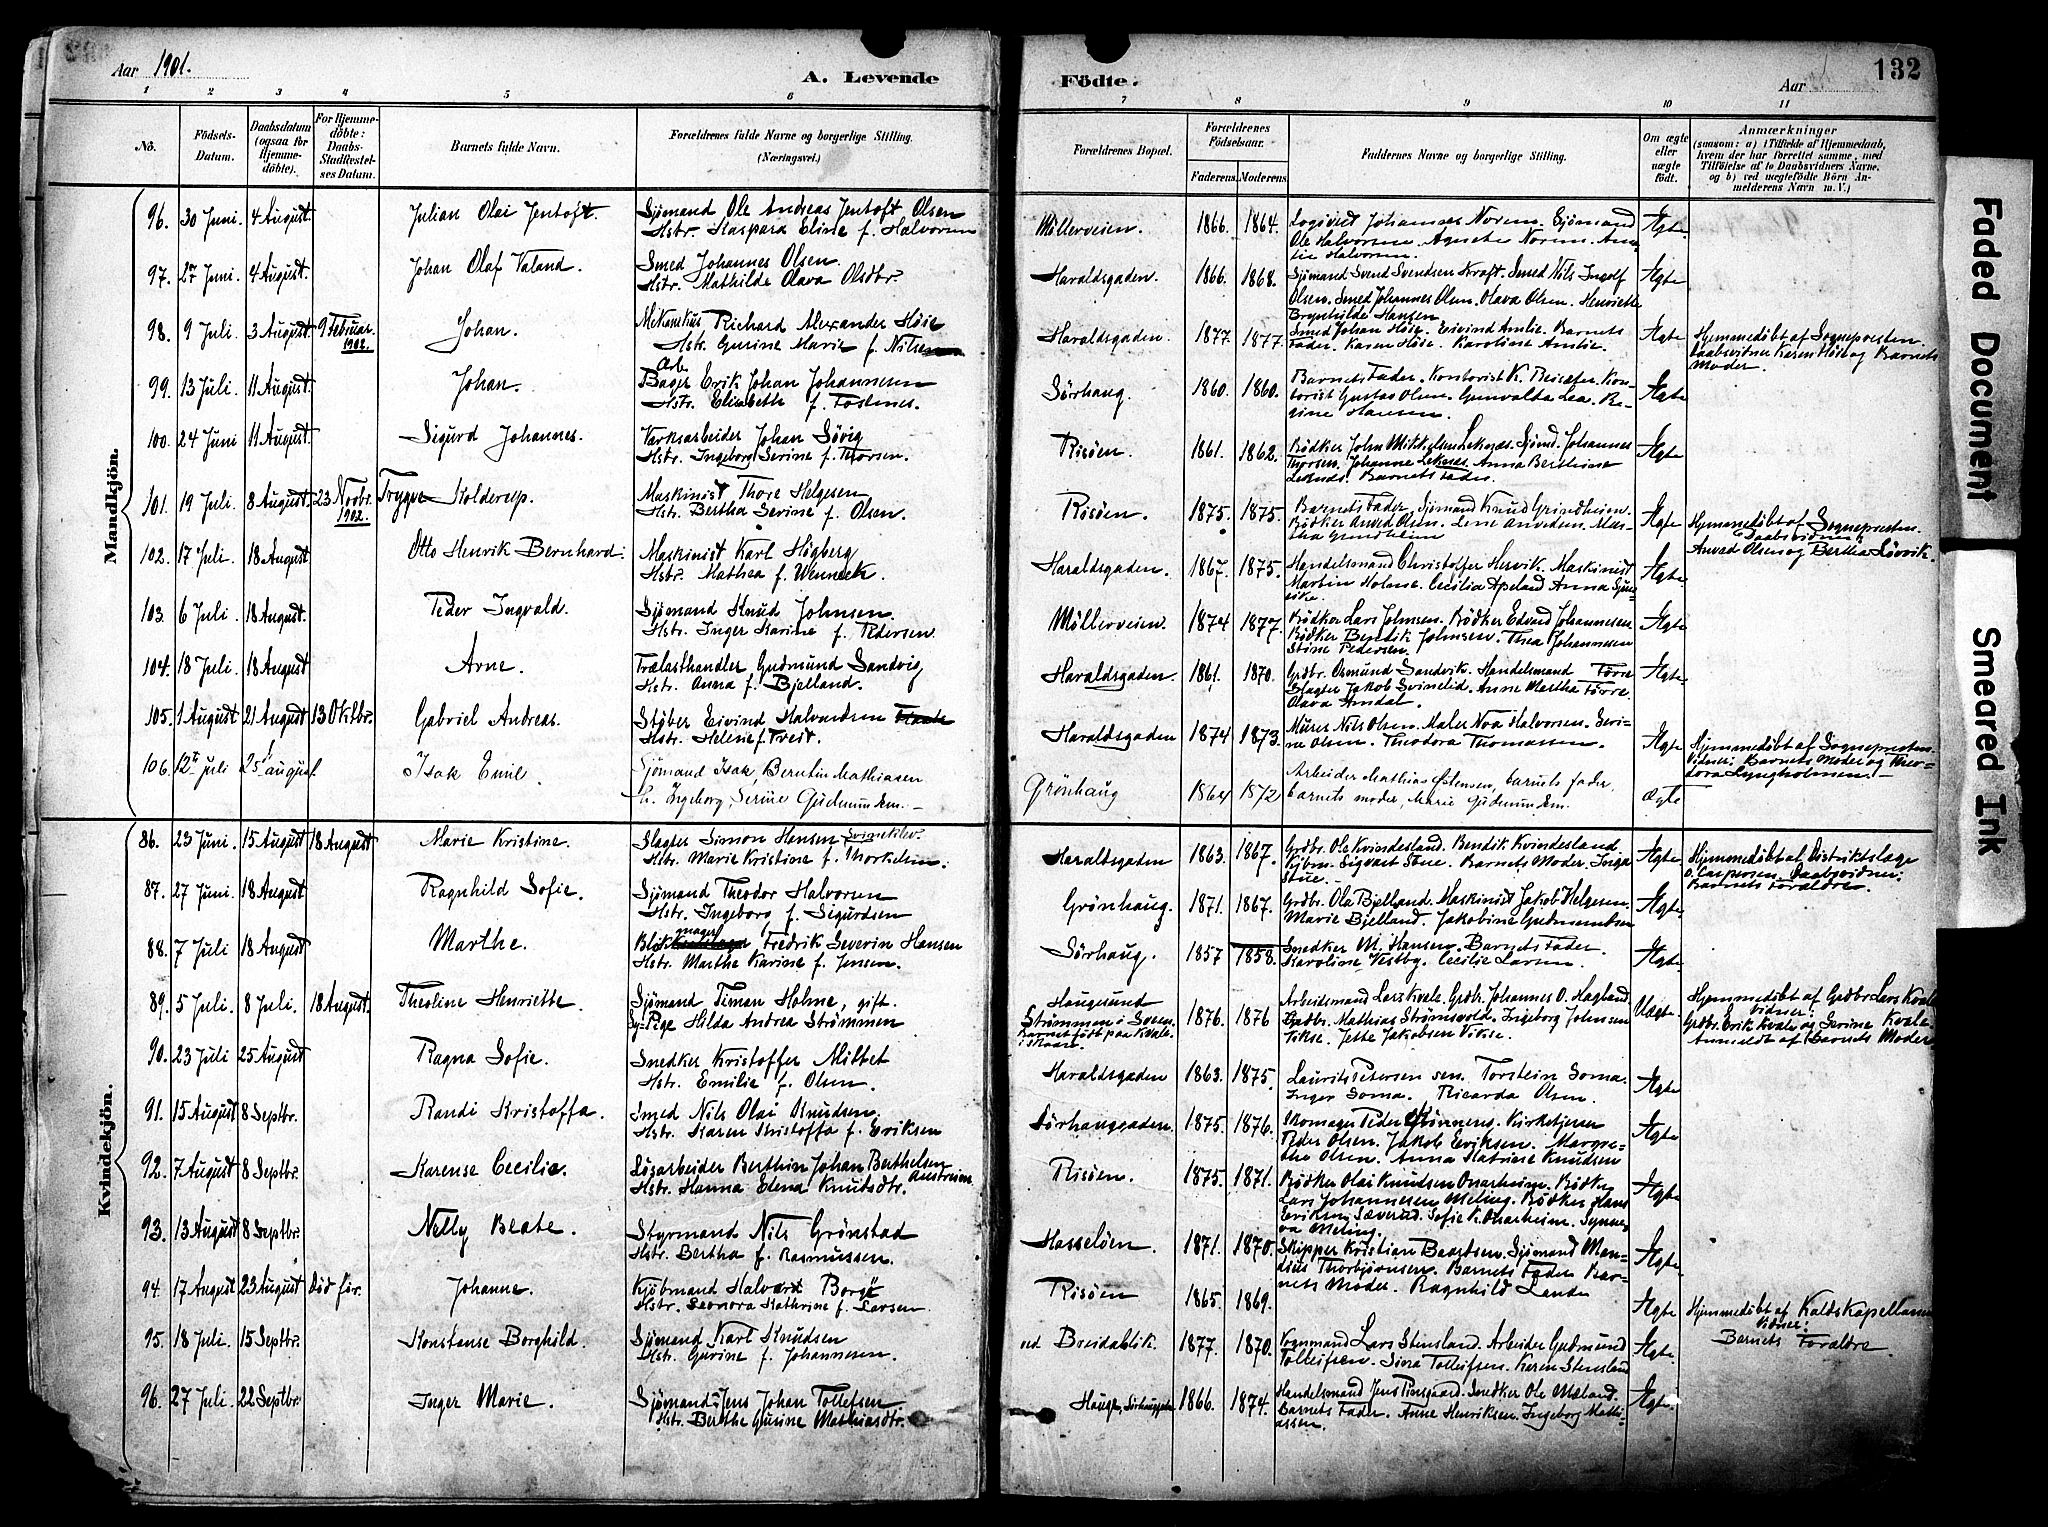 Aar 1901.
A. Levende
Födte.
Aar
132
1 2 3 4 5 6 7 8 9 10 11
No.
Födsels-
Datum.
Daabsdatum
(ogsaa for
Hjemme-
döbte).
For Hjemme-
döbte:
Daabs-
Stadfæstel-
ses Datum.
Barnets fulde Navn.
Forældrenes fulde Navne og borgerlige Stilling.
(Næringsvei.)
Forældrenes Bopæl.
Forældrenes
Födselsaar.
Faderens. Moderens.
Faddernes Navne og borgerlige Stilling.
Om ægte
eller
uægte
födt.
Anmærkninger
(saasom: a) i Tilfælde af Hjemmedaab,
hvem der har forrettet samme, med
Tilföielse af to Daabsvidners Navne,
og b) ved uægtefödte Börn An-
melderens Navn m. V.)
Mandkjön.
96. 30 Juni. 4 August. Julian Olai Jentoft. Sjömand Ole Andreas Jentoft Olsen
Hstr. Kaspara Eline f. Halvorsen
Möllerveien. 1866. 1864. Johannes Norem. Sjömand
Ole Halvorsen. Agnete Norem.
Halvorsen. Ægte.
97. 27 Juni. 4 August. Johan Olaf Valand. Smed Johannes Olsen.
Hstr. Mathilde Olava Olsdtr.
Haraldsgaden. 1866. 1868. Sjömand Svend Svendsen Kroft. Smed Nils Ingolf
Olsen. Smed Johannes Olsen. Olava Olsen. Henriette
Brynhilde Hansen Ægte
98. 9 Juli. 3 August. 9 Februar 1902. Johan. Mekanikus Richard Alexander Höie
Hstr. Gurine Marie f. Nilsen
Haraldsgaden. 1877. 1877. Smed Johan Höie. Eivind Amlie. Barnets
Fader. Karen Höie. Karoline Amlie. Ægte
Hjemmedöbt af Sognepresten.
Daabsvidner Karen Höie og Barnets
Moder.
99. 13 Juli. 11 August. Johan. Arb.
Bager Erik Johan Johannesen
Hstr. Elisabeth f.
Sörhaug. 1860. 1860. Barnets Fader. Kontorist K. Kon-
torist Gustav Olsen. Gunvalda Lea. Be-
gine Hansen. Ægte
100. 24 Juni 11 August. Sigurd Johannes. Værksarbeider Johan Sövig
Hstr. Ingeborg Serine f. Thorsen.
Risöen. 1861. 1862. Bödker John Mikkelsen Leknæs. Sjömd. Johannes
Thorsen. Johanne Leknes. Anna Berthine
Barnets Fader. Ægte
101. 19 Juli. 8 August. 23 Novbr. 1902. Trygve Kolderup. Maskinist Thore Helgesen
Hstr. Bertha Serine f. Olsen.
Risöen. 1875. 1875. Barnets Fader. Sjömand Knud Grindheim.
Bödker Anved Olsen. Lene Anvedsen. Mar-
tha Grindheim Ægte
Hjemmedöbt af Sognepresten.
Daabsvidner
Anvad Olsen og Bertha Lövvik.
102. 17 Juli. 18 August. Otto Henrik Bernhard. Maskinist Karl Högberg
Hstr. Mathea f. Wenneck.
Haraldsgaden. 1867. 1875. Handelsmand Christoffer Hervik. Maskinist
Martin Holme. Cecilia Apeland Anna Ægte.
103. 6 Juli. 18 August. Peder Ingvald. Sjömand Knud Johnsen.
Hstr. Inger Karine f. Pedersen
Möllerveien. 1874 1877. Bödker Lars Johnsen. Bödker Edvard Johannesen.
Bödker Bendik Johnsen. Thea Johannesen
Stine Pedersen. Ægte
104. 18 Juli. 18 August. Arne. Trælasthandler Gudmund Sandvig
Hstr. Anna f. Bjelland.
Haraldsgaden. 1861. 1870. Grdbr. Osmund Sandvik. Handelsmand Förre
Slagter Jakob Svinelid. Anne Martha Förre.
Olava Amdal. Ægte.
105. 1 August 21 August 13 Oktbr. Gabriel Andreas. Stöber Eivind Halvordsen
Hstr. Helene f. Tveit.
Haraldsgaden 1874 1873. Murer Nils Olsen. Maler Noa Halvorsen. Seri-
ne Olsen. Theodora Thomassen. Ægte
Hjemmedöbt af Sognepresten.
Vidner: Barnets Moder og Theo-
dora Lyngholmen.
106. 12te juli 25 august. Isak Emil. Sjömand Isak, Berntin Mathiasen
h. Ingeborg, Serine Gudmundsen.
Grönhaug 1864 1872 Arbeider Mathias Östensen, barnets fader,
barnets moder, Marie Gudmundsen. ægte
Kvindekjön.
86. 23 Juni. 15 August 18 August Marie Kristine. Slagter Simon Hansen Svineklev.
Hstr. Marie Kristine f. Thorkelsen.
Haraldsgaden 1863. 1867. Grdbr. Ole Kvindesland. Bendik Kvindesland
Kjbm. Sigvart Stue. Barnets Moder. Inga
Stue. Ægte
Hjemmedöbt af Distriktslæge
O. Caspersen. Daabsvidner:
Barnets Forældre.
87. 27 Juni. 18 August. Ragnhild Sofie. Sjömand Theodor Halvorsen
Hstr. Ingeborg f. Sigurdsen
Grönhaug. 1871. 1867. Grdbr. Ola Bjelland. Maskinist Jakob Helgesen.
Marie Bjelland. Jakobine Gudmundsen Ægte.
88. 7 Juli 18 August. Marthe. Blokmager Fredrik Severin Hansen
Hstr. Marthe Karine f. Jensen.
Sörhaug. 1857 1858. Snedker M. Hansen. Barnets Fader.
Karoline Vestby. Cecilie Larsen. Ægte.
89. 5 Juli. 8 Juli. 18 August. Theoline Henriette Sjömand Timan Holme, gift.
Pige Hilda Andrea Strömmen
Haugesund
Strömmen i Sveen.
Barnet födt paa Kvale
i Skaare. 1876. 1876 Arbeidsmand Lars Kvale. Grdbr. Johannes O. Hagland.
Grdbr. Mathias Strömsvold. Ingeborg Johnsen
Vikse. Jette Jakobsen Vikse. Uægte
Hjemmedöbt af Grdbr Lars Kvale
Vidner:
Grdbr. Erik Kvale og Serine Kvale.
Anmeldt af Barnets Moder
90. 23 Juli 25 August. Ragna Sofie. Snedker Kristoffer Miltvet
Hstr. Emilie f. Olsen.
Haraldsgaden 1863. 1875. Laurits Petersen sen. Torstein Soma.
Inger Soma. Ricarda Olsen. Ægte
91. 15 August 8 Septbr. Randi Kristoffa. Smed Nils Olai Knudsen.
Hstr. Karen Kristoffa f. Eriksen
Sörhauggaden. 1875. 1876. Skomager Peder Grönneng. Kirketjener
Peder Olsen. Jakob Eriksen. Margre-
the Olsen. Anna Katrine Knudsen Ægte
92. 7 August 8 Septbr. Karense Cecilie. Lösarbeider Berthin Johan Berthelsen Austreim.
Hstr. Hanna Edena Knutsdtr.
Risöen. 1875. 1871. Bödker Olai Knudsen Onarheim. Bödker
Lars Johannesen Meling. Bödker Hans
Eriksen Sæverud. Sofie K. Onarheim. Synne-
va Meling. Ægte
93. 13 August 8 Septbr. Nelly Beate. Styrmand Nils Grönstad
Hstr. Bertha f. Rasmussen.
Hasselöen. 1871. 1870. Skipper Kristian Baardsen. Sjömand Man-
dius Thorbjörnsen. Barnets Fader Bar-
nets Moder. Ragnhild Lande Ægte
94. 17 August 23 August Död för. Johanne. Kjöbmand Halvard Borge
Hstr. Leonora Kathrine f. Larsen.
Risöen 1865. 1869. Ægte
Hjemmedöbt af Kaldskapellanen
Vidner:
Barnets Forældre.
95. 18 Juli. 15 Septbr. Konstanse Borghild. Sjömand Karl Knudsen
Hstr. Gurine f. Johannesen.
ved Breidablik. 1877. 1870. Vognmand Lars Stensland. Arbeider Gudmund
Tolleifsen. Sina Tolleifsen. Karen Stensland Ægte
96. 27 Juli. 22 Septbr. Inger Marie. Sjömand Jens Johan Tollefsen
Hstr. Berthe Gurine Mathiasdtr.
1866. 1874. Handelsmand Jens Ringgaard. Snedker Ole Mæland.
Barnets Fader. Anne Henriksen. Ingeborg Mathi-
assen. Ægte.
Faded Document
Smeared Ink